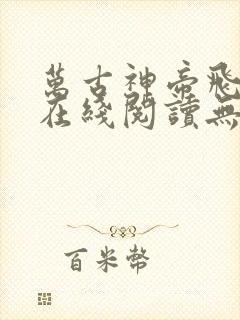 萬古神帝飛
在綫閱讀無
百米幣